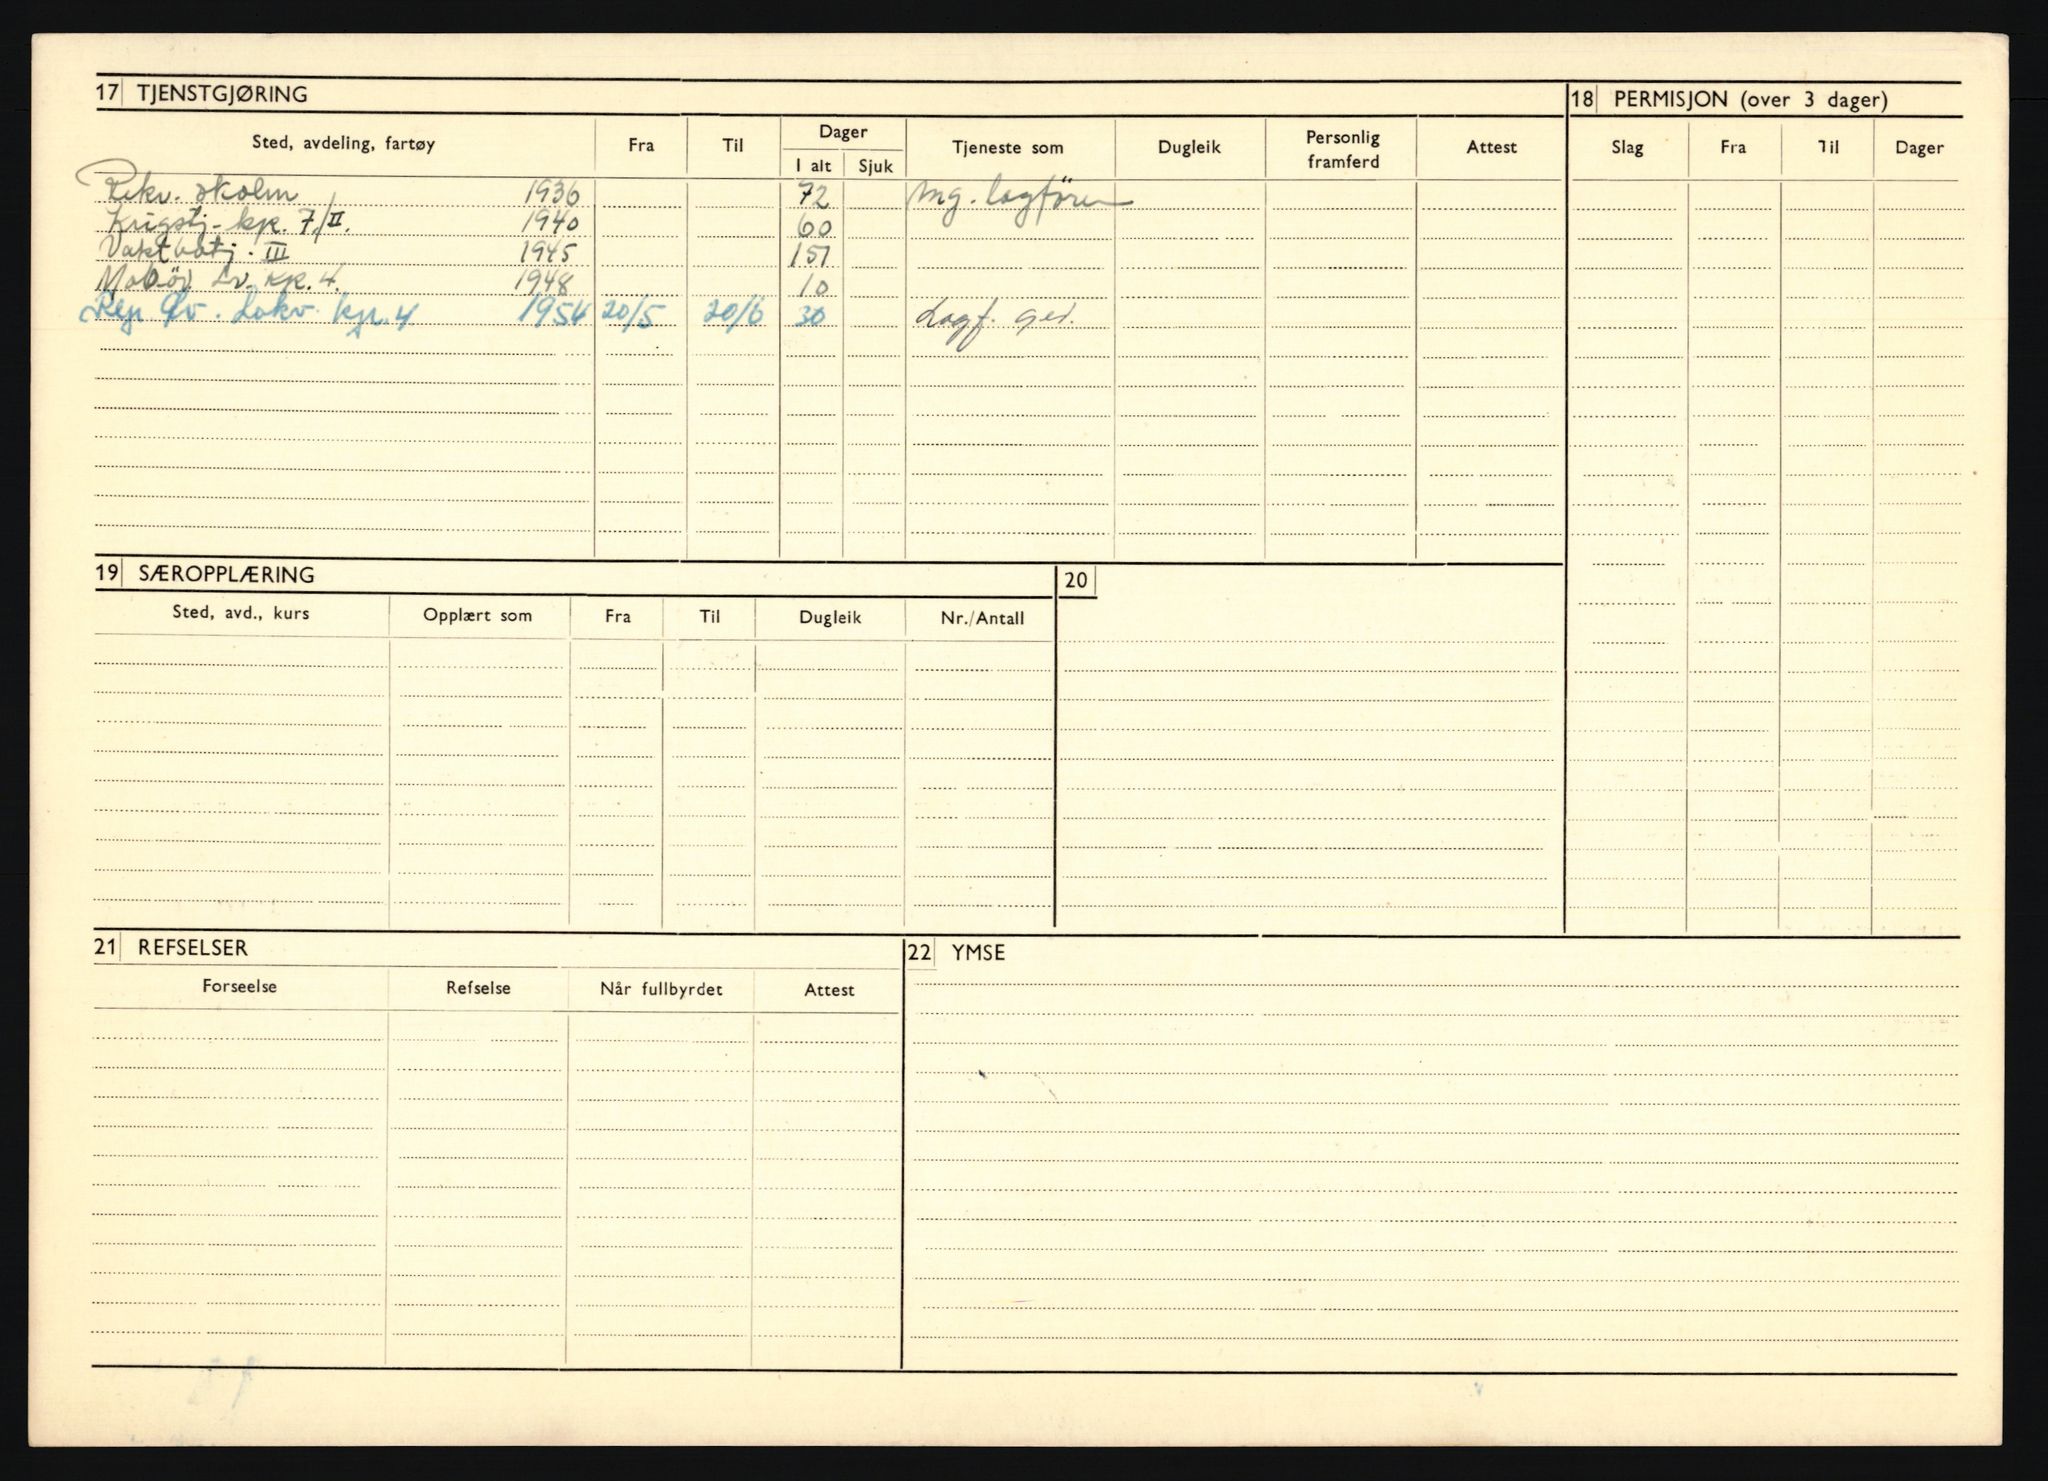 17 TJENSTGJØRING
18 PERMISJON (over 3 dager)
Sted, avdeling, fartøy Fra Til Dager Tjeneste som Dugleik Personlig framferd Attest Slag Fra Til Dager
I alt Sjuk
Rekr. skolen 1936 72 Mg. lagförer
Krigstj. kp. 7/II. 1940 60
Vaktbatj. III 1945 151
Moböv Lv. kp. 4. 1948 10
Rep Øv. Lokv. kp. 4 1954 20/5 20/6 30 Lagf. gev.
19 SÆROPPLÆRING
20
Sted, avd., kurs Opplært som Fra Til Dugleik Nr./Antall
21 REFSELSER
22 YMSE
Forseelse Refselse Når fullbyrdet Attest